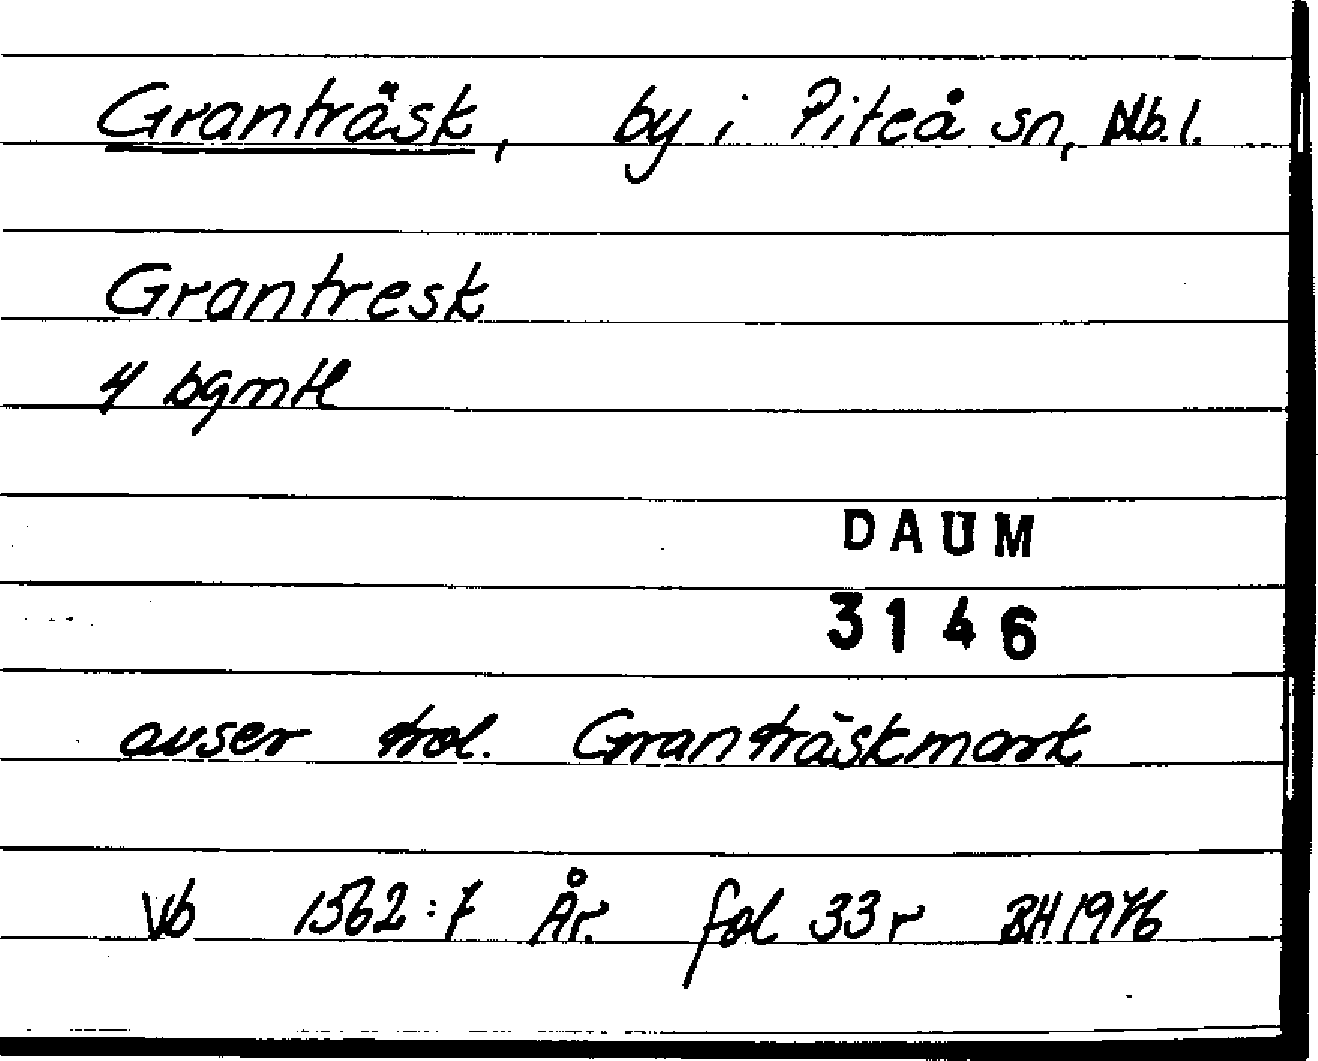 Granträsk, by i Piteå sn, Nb.l.
Grantresk
4 bgmtl
DAUM
3146
avser trol. Granträskmark
Vb 1562:7 År. fol 33r BH 1976